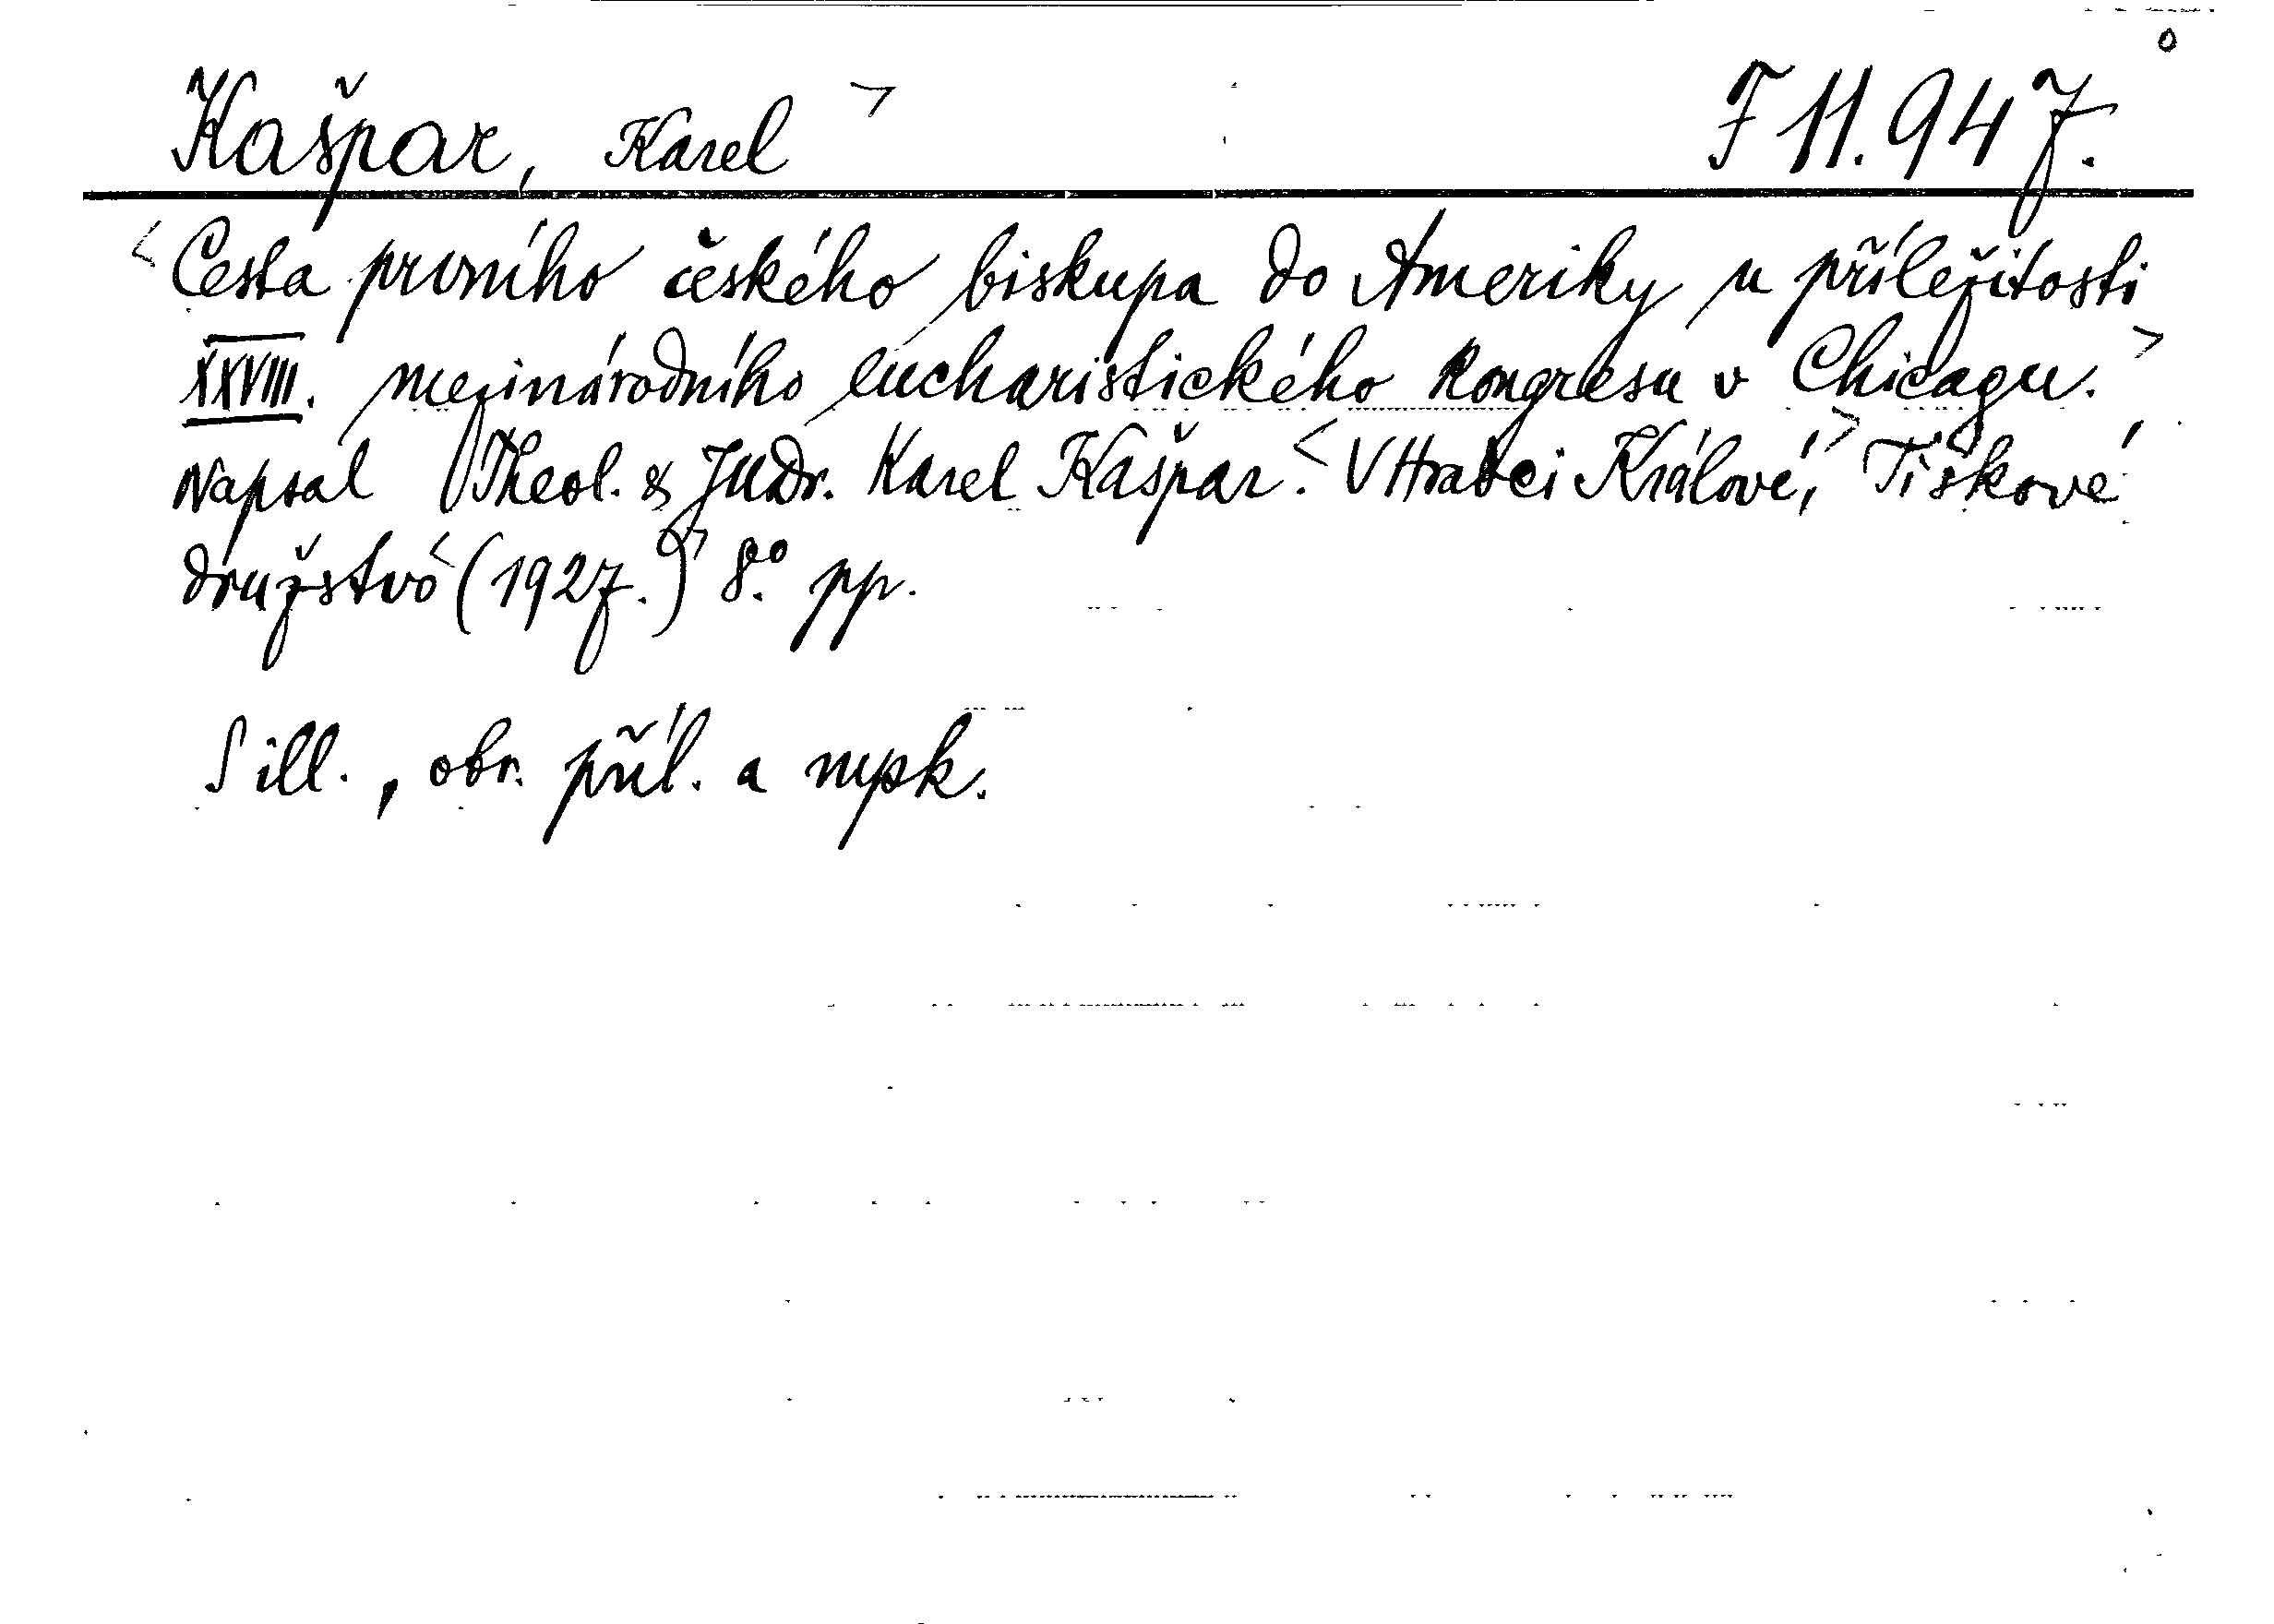 Kašpar, Karel F 11.947.
Cesta prvního českého biskupa do Ameriky u příležitosti
XXVIII. mezinárodního eucharistického kongresu v Chicagu.
Napsal Theol. & JUDr. Karel Kašpar. V Hradci Králové, Tiskové
družstvo (1927.) 8.° pp.
S ill., obr. příl. a mpk.